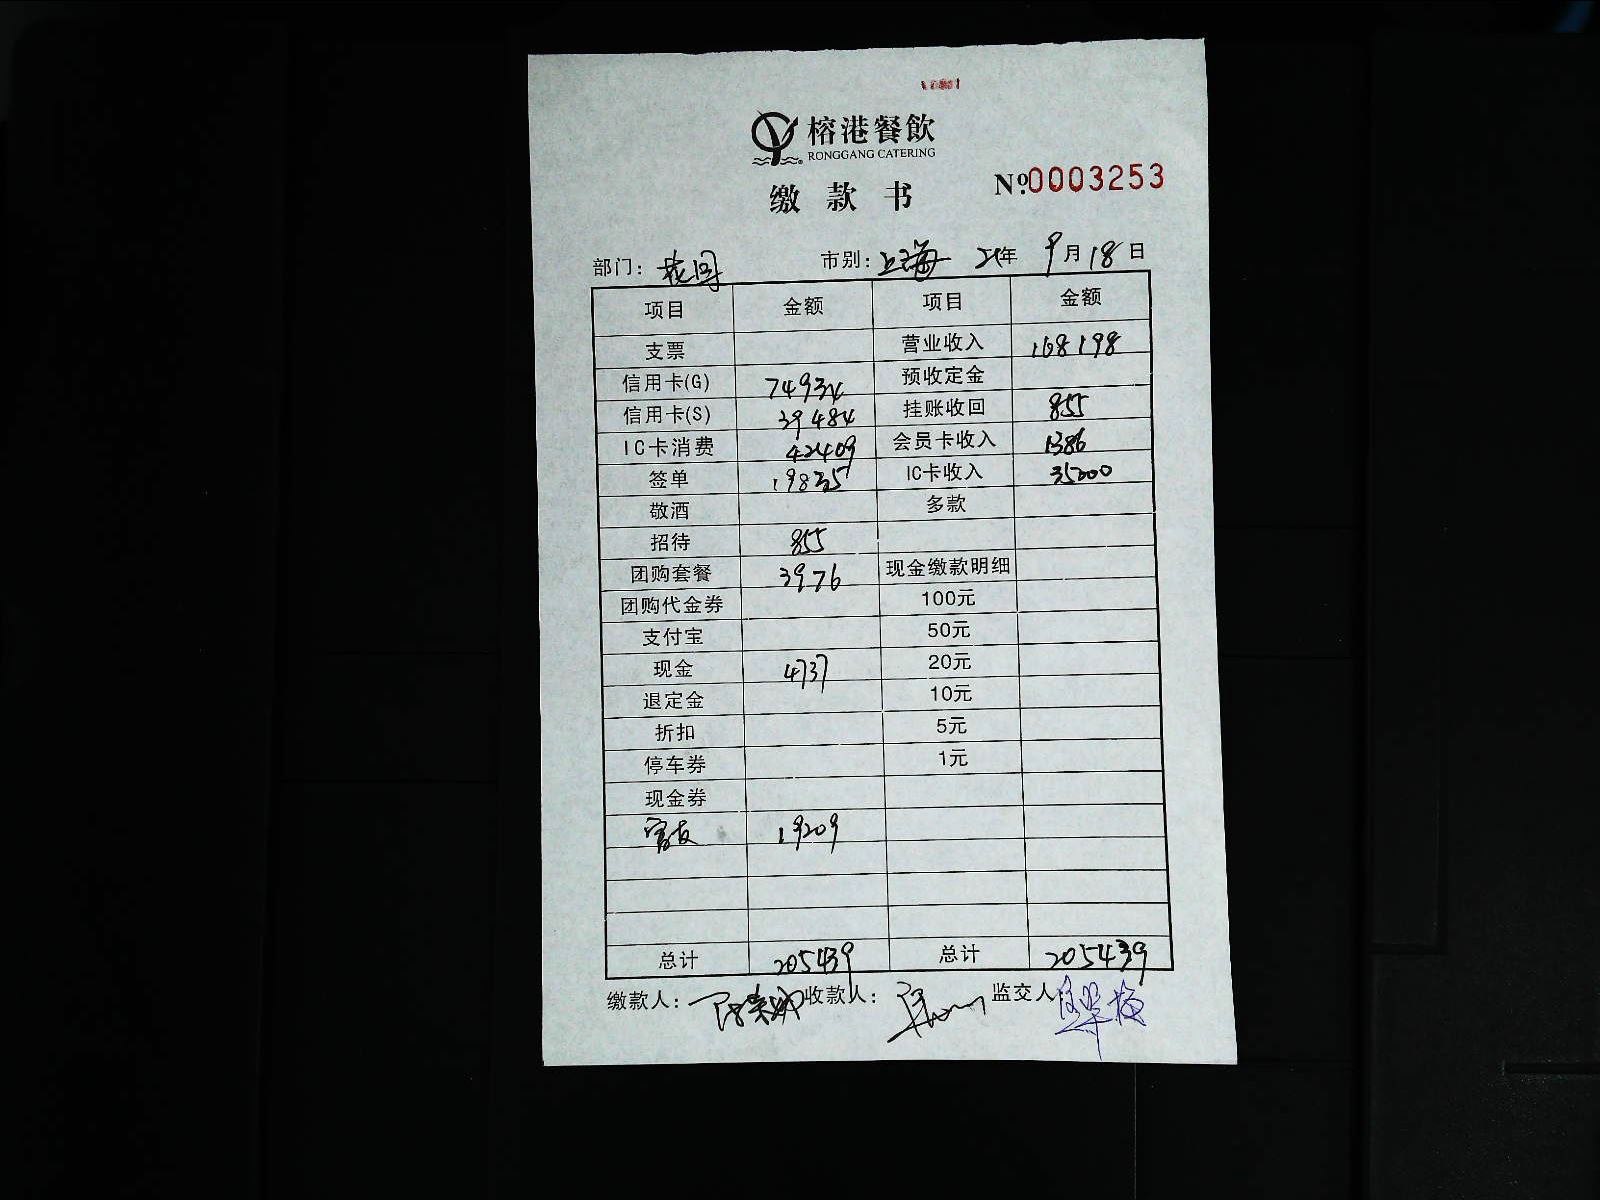 榕港餐飲
RONGGANG CATERING
缴款书 Nº0003253
部门: 市别: 上海 21年 9月18日
项目 金额 项目 金额
支票 营业收入 168198
信用卡(G) 74934 预收定金
信用卡(S) 39484 挂账收回 855
IC卡消费 42409 会员卡收入 1386
签单 19835 IC卡收入 35000
敬酒 多款
招待 855
团购套餐 3976 现金缴款明细
团购代金券 100元
支付宝 50元
现金 4737 20元
退定金 10元
折扣 5元
停车券 1元
现金券
19209
总计 205439 总计 205439
缴款人: 收款人: 监交人: